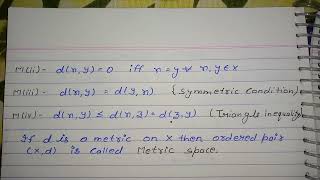 M(ii)- d(x,y)=0 iff x=y ∀ x,y∈X
M(iii)- d(x,y) = d(y,x). {Symmetric condition}
M(iv)- d(x,y) ≤ d(x,z)+d(z,y) (Triangle inequality
If d is a metric on X then ordered pair
(X,d) is called Metric space.